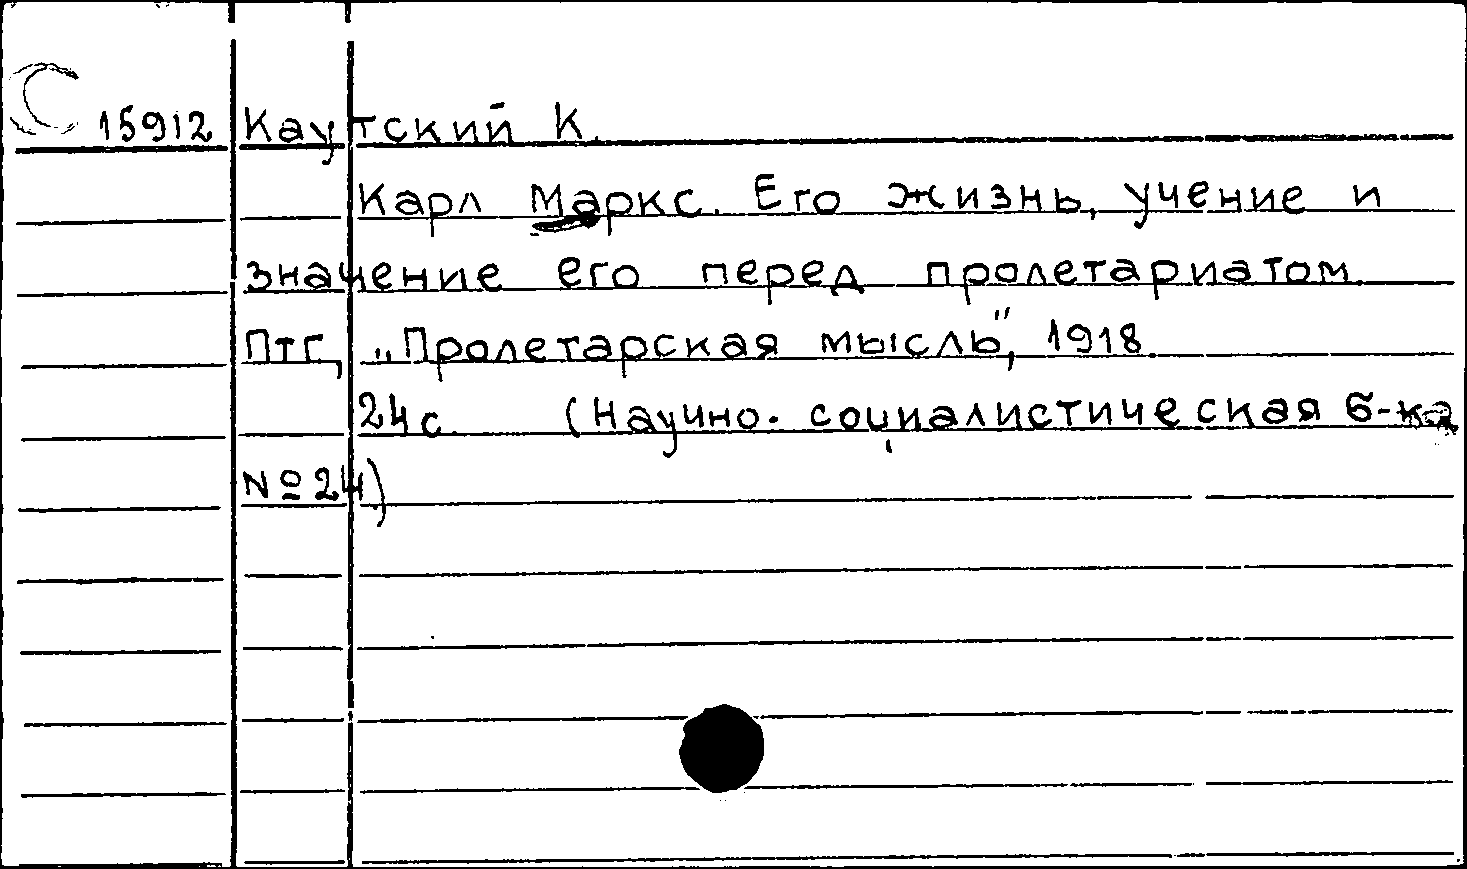 15912 Каутский К.
Карл Маркс. Его жизнь, учение и
значение его перед пролетариатом.
Птг, „Пролетарская мысль", 1918.
24 с. (Научно-социалистическая б-ка
№ 24)